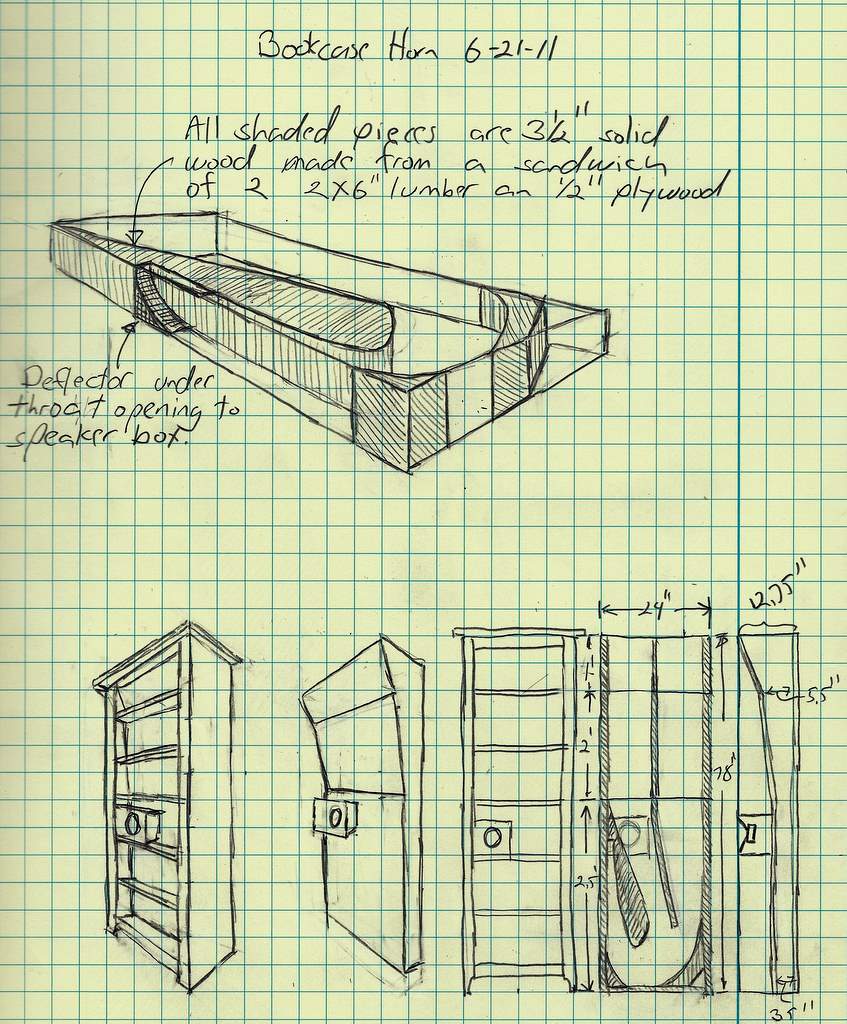 Bookcase Horn 6-21-11
All shaded pieces are 3½" solid
wood made from a sandwich
of 2 2x6" lumber an ½" plywood
Deflector under
throat opening to
speaker box.
24"
12.75"
1'
5.5"
2'
78"
2.5'
3.5"